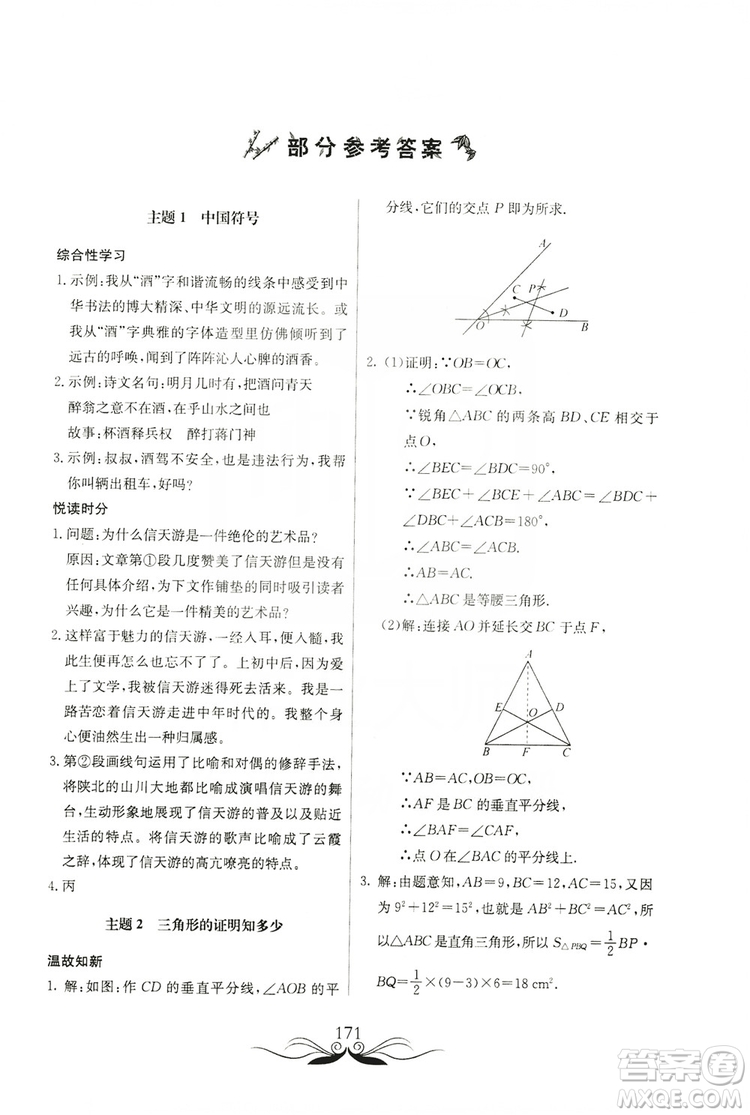 部分参考答案
主题1 中国符号
综合性学习
1. 示例:我从“酒”字和谐流畅的线条中感受到中
华书法的博大精深、中华文明的源远流长。或
我从“酒”字典雅的字体造型里仿佛倾听到了
远古的呼唤,闻到了阵阵沁人心脾的酒香。
2. 示例:诗文名句:明月几时有,把酒问青天
醉翁之意不在酒,在乎山水之间也
故事:杯酒释兵权 醉打蒋门神
3. 示例:叔叔,酒驾不安全,也是违法行为,我帮
你叫辆出租车,好吗?
悦读时分
1. 问题:为什么信天游是一件绝伦的艺术品?
原因:文章第①段几度赞美了信天游,但没有
任何具体介绍,为下文作铺垫的同时吸引读者
兴趣,为什么它是一件精美的艺术品?
2. 这样富于魅力的信天游,一经入耳,便入髓,我
的血肉,便化入了我的生命。上初中后,我迷
上了文学,我对信天游迷得死去活来。我是一
路苦恋着信天游走进中年时代的。今生,我身
心便油然生出一种归属感。
3. 第②段画线句运用了比喻和对偶的修辞手法,
将陕北的山川大地都比喻成了演唱信天游的舞
台,生动形象地展现了信天游的普及以及贴近
生活的特点。将信天游的歌声比喻成了云霞
之辞,体现了信天游的高亢嘹亮的特点。
4. 丙
主题2 三角形的证明知多少
温故知新
1. 解:如图:作CD的垂直平分线,∠AOB的平
分线,它们的交点P即为所求.
A
C
P
D
O
B
2. (1)证明:∵OB=OC,
∴∠OBC=∠OCB.
∵锐角△ABC的两条高BD、CE相交于
点O,
∴∠BEC=∠BDC=90°.
∵∠BEC+∠BCE+∠ABC=∠BDC+
∠DBC+∠ACB=180°,
∴∠ABC=∠ACB.
∴AB=AC.
∴△ABC是等腰三角形.
(2)解:连接AO并延长交BC于点F,
A
E
D
O
B
F
C
∵AB=AC,OB=OC,
∴AF是BC的垂直平分线,
∴∠BAF=∠CAF,
∴点O在∠BAC的平分线上.
3. 解:由题意知,AB=9,BC=12,AC=15,又因
为9²+12²=15²,也就是AB²+BC²=AC²,所
以△ABC是直角三角形,所以S△PBQ=1/2BP·
BQ=1/2×(9-3)×6=18 cm².
171
答案圈
MXQE.COM